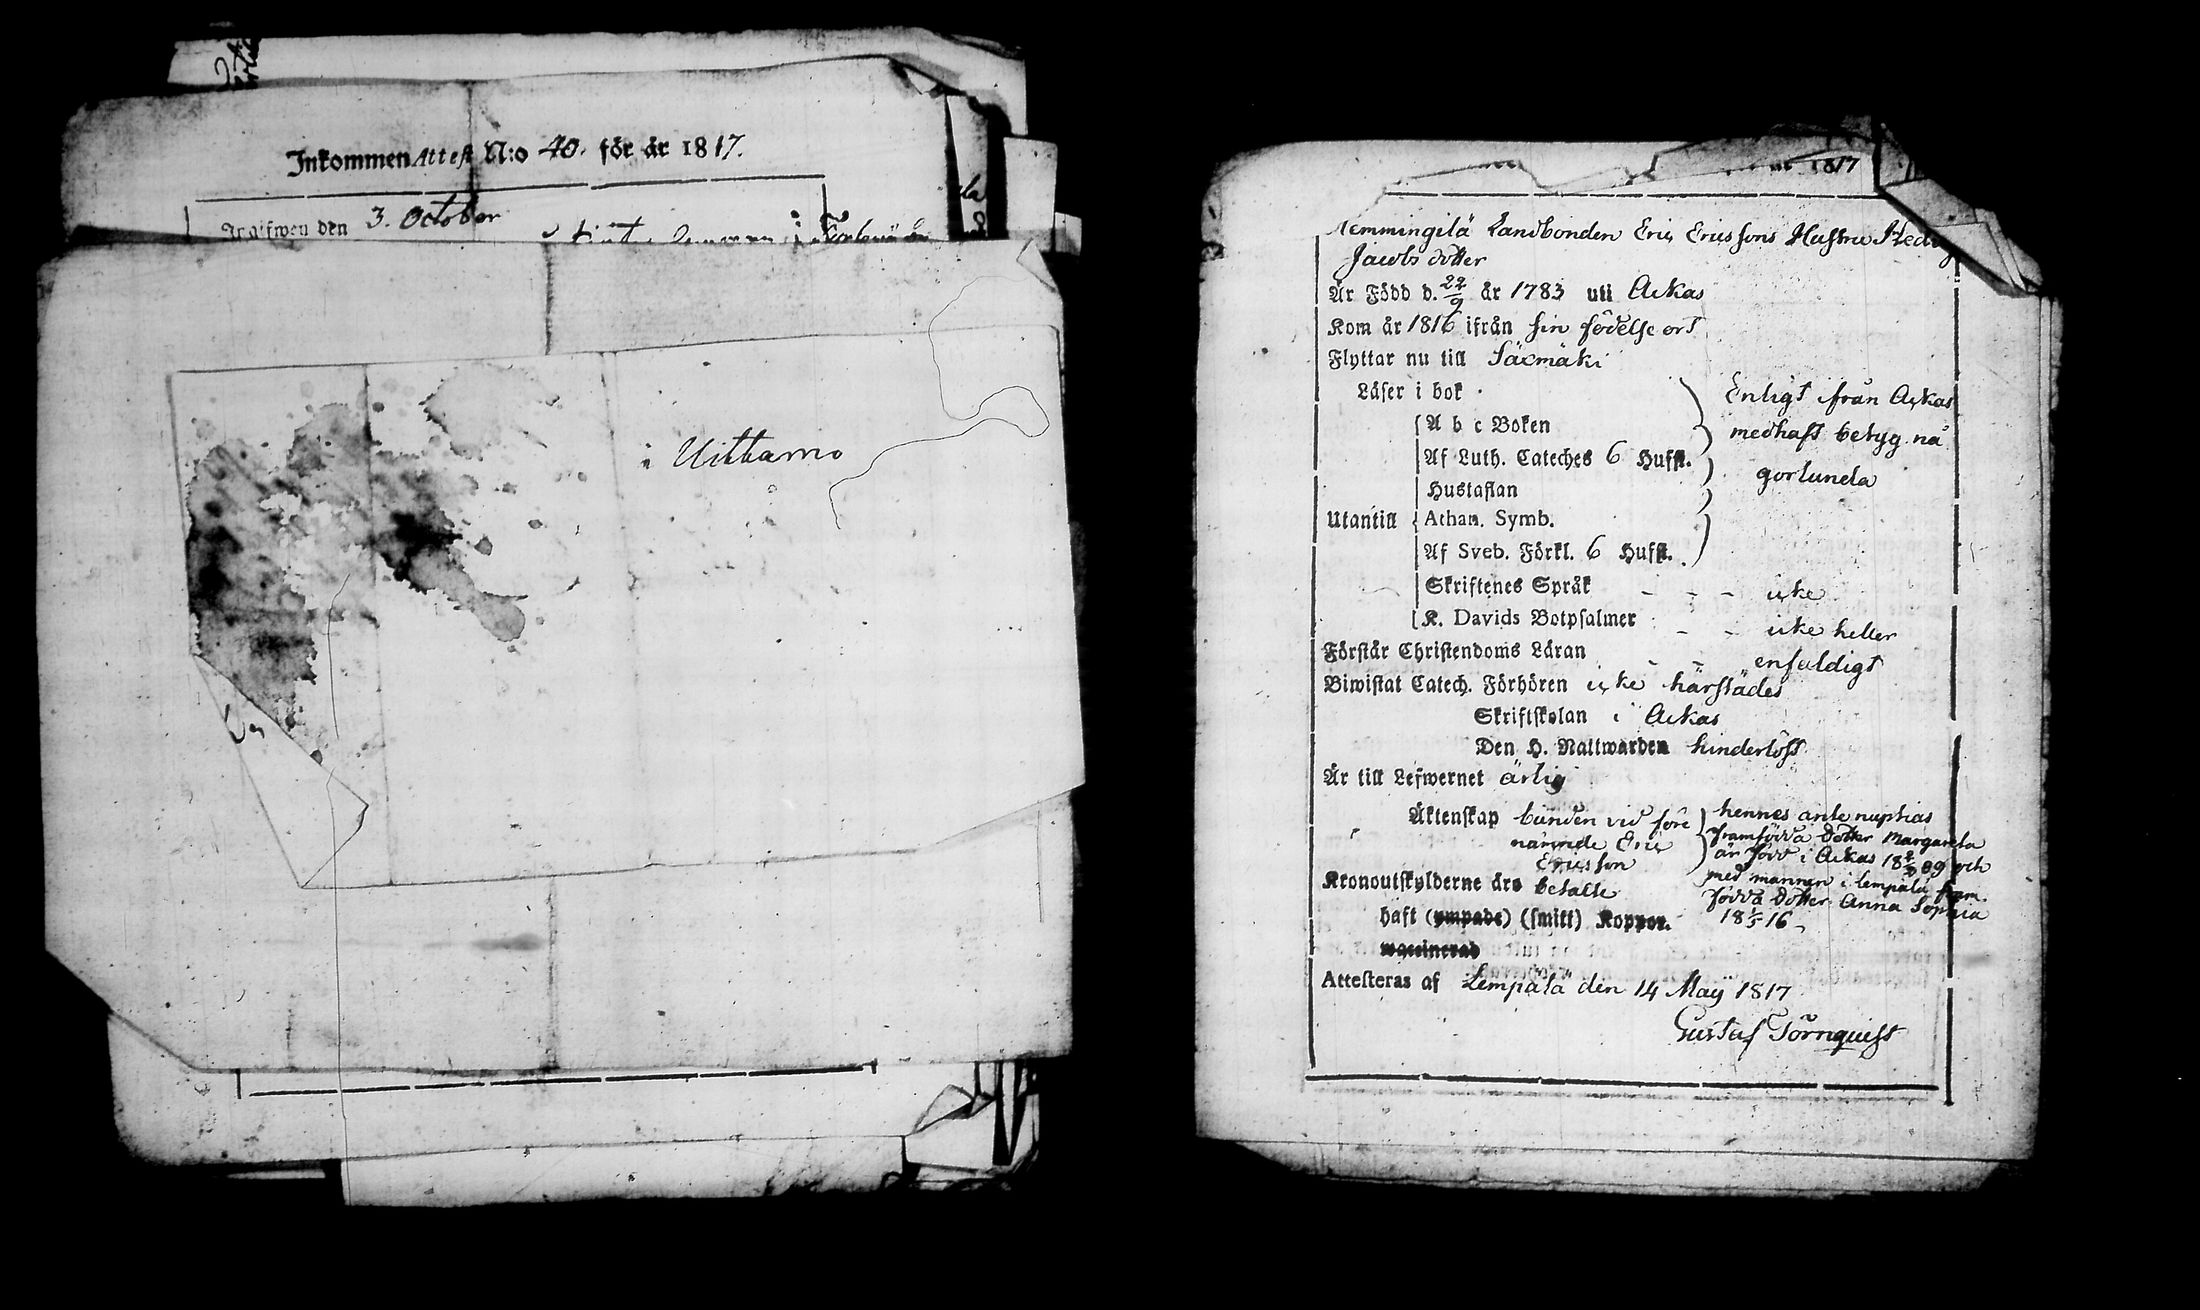 Inkommen Attest N:o 40. för år 1817.
Ingifwen den 3. October
i Uittamo
1817
Hemmingilä Landbonden Eric Ericssons Hustru Hedvig
Jacobs dotter
Är Född d. 22/9 år 1783 uti Ackas
Kom år 1816 ifrån sin födelse ort
Flyttar nu till Säxmäki
Läser i bok
A b c Boken
Af Luth. Cateches 6 Hufst.
Hustaflan
Utantill Athan. Symb.
Af Sveb. Förkl. 6 Hufst.
Enligt ifrån Ackas
medhaft betyg nå
gorlunda
Skriftenes Språk - - - icke
K. Davids Botpsalmer - - icke heller
Förstår Christendoms Läran - - enfaldigt
Biwistat Catech. Förhören icke härstädes
Skriftskolan i Ackas
Den H. Nattwarden hinderlöst
Är till Lefwernet ärlig
Äktenskap bunden vid före
nämnde Eric
Ericsson
hennes ante nuptias
framfödda dotter Margareta
är född i Ackas 18 2/9 09 och
med mannen i Lempälä fram
födda dotter Anna Sophia
18 1/5 16
Kronoutskylderne äro betalte
haft (ympade) (smitt) Koppor.
waccinerad
Attesteras af Lempälä den 14 Maij 1817
Gustaf Törnquist